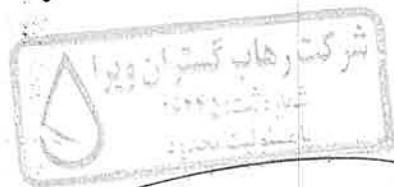 شرکت رهاب گستران ویرا
شماره ثبت:
با مسئولیت محدود